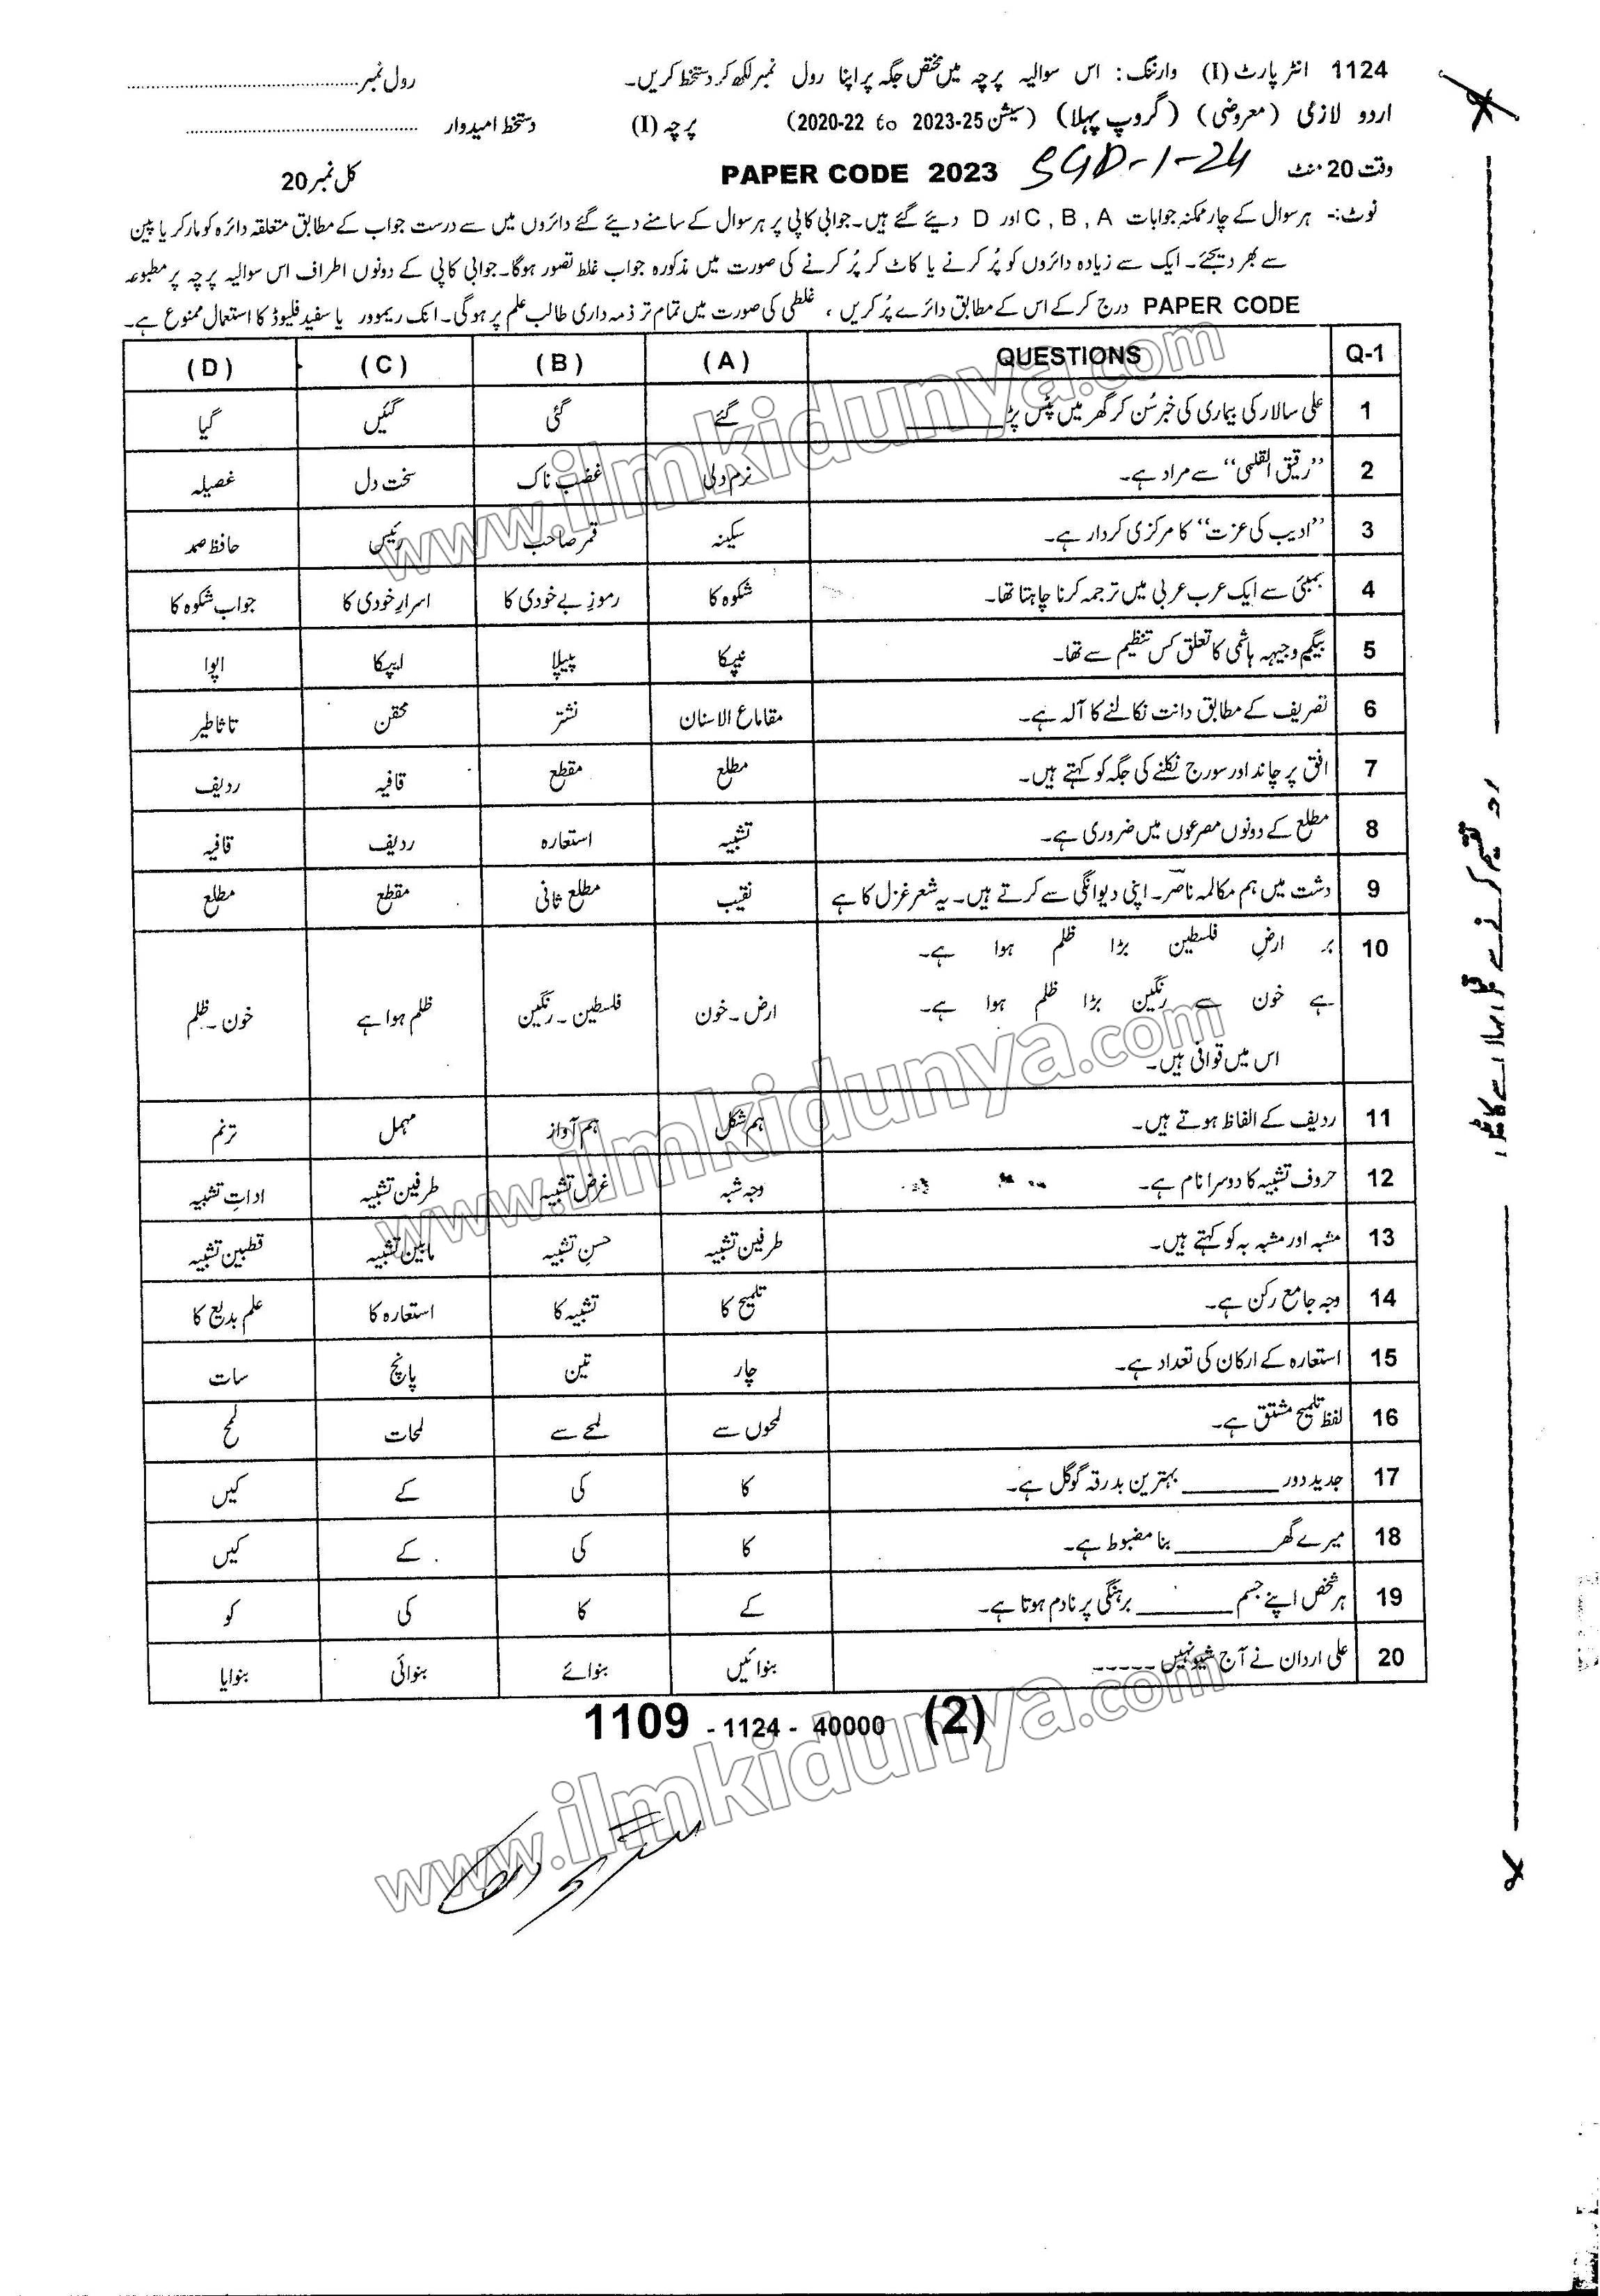 1124 انٹر پارٹ (I) وارننگ: اس سوالیہ پرچہ میں مختص جگہ پر اپنا رول نمبر لکھ کر دستخط کریں۔ رول نمبر
اردو لازمی (معروضی) (گروپ پہلا) (سیشن 2020-22 to 2023-25) پرچہ (I) دستخط امیدوار
وقت 20 منٹ SGD-1-24 PAPER CODE 2023 کل نمبر 20
نوٹ:- ہر سوال کے چار ممکنہ جوابات A , B , C اور D دیئے گئے ہیں۔ جوابی کاپی پر ہر سوال کے سامنے دیئے گئے دائروں میں سے درست جواب کے مطابق متعلقہ دائرہ کو مارکر یا پین
سے بھر دیجئے۔ ایک سے زیادہ دائروں کو پُر کرنے یا کاٹ کر پُر کرنے کی صورت میں مذکورہ جواب غلط تصور ہوگا۔ جوابی کاپی کے دونوں اطراف اس سوالیہ پرچہ پر مطبوعہ
PAPER CODE درج کر کے اس کے مطابق دائرے پُر کریں ، غلطی کی صورت میں تمام تر ذمہ داری طالب علم پر ہوگی۔ انک ریموور یا سفید فلیوڈ کا استعمال ممنوع ہے۔
Q-1 QUESTIONS (A) (B) (C) (D)
1 علی سالار کی بیماری کی خبر سُن کر گھر میں پٹس پڑ ______ گئے گئی گئیں گیا
2 ’’رقیق القلبی‘‘ سے مراد ہے۔ نرم دلی غضب ناک سخت دل غصیلہ
3 ’’ادیب کی عزت‘‘ کا مرکزی کردار ہے۔ سکینہ قمر صاحب رئیس حافظ صمد
4 بمبئی سے ایک عرب عربی میں ترجمہ کرنا چاہتا تھا۔ شکوہ کا رموزِ بے خودی کا اسرارِ خودی کا جواب شکوہ کا
5 بیگم وجیہہ ہاشمی کا تعلق کس تنظیم سے تھا۔ نیپکا پیپلا ایپکا اپوا
6 تصریف کے مطابق دانت نکالنے کا آلہ ہے۔ مقاماع الاسنان نشتر محقن تاثاطیر
7 افق پر چاند اور سورج نکلنے کی جگہ کو کہتے ہیں۔ مطلع مقطع قافیہ ردیف
8 مطلع کے دونوں مصرعوں میں ضروری ہے۔ تشبیہ استعارہ ردیف قافیہ
9 دشت میں ہم مکالمہ ناصر۔ اپنی دیوانگی سے کرتے ہیں۔ یہ شعر غزل کا ہے نقیب مطلع ثانی مقطع مطلع
10 بر ارضِ فلسطین بڑا ظلم ہوا ہے۔
ہے خون سے رنگین بڑا ظلم ہوا ہے۔
اس میں قوافی ہیں۔ ارض۔خون فلسطین۔رنگین ظلم ہوا ہے خون۔ظلم
11 ردیف کے الفاظ ہوتے ہیں۔ ہم شکل ہم آواز مہمل ترنم
12 حروف تشبیہ کا دوسرا نام ہے۔ وجہ شبہ غرض تشبیہ طرفین تشبیہ اداتِ تشبیہ
13 مشبہ اور مشبہ بہ کو کہتے ہیں۔ طرفین تشبیہ حسنِ تشبیہ مابین تشبیہ قطبین تشبیہ
14 وجہ جامع رکن ہے۔ تلمیح کا تشبیہ کا استعارہ کا علم بدیع کا
15 استعارہ کے ارکان کی تعداد ہے۔ چار تین پانچ سات
16 لفظ تلمیح مشتق ہے۔ لمحوں سے لمحے سے لمحات لمح
17 جدید دور ______ بہترین بدرقہ گوگل ہے۔ کا کی کے کیں
18 میرے گھر ______ بنا مضبوط ہے۔ کا کی کے کیں
19 ہر شخص اپنے جسم ______ برہنگی پر نادم ہوتا ہے۔ کے کا کی کو
20 علی اردان نے آج شیو نہیں ----- بنوائیں بنوائے بنوائی بنوایا
1109 - 1124 - 40000 (2)
www.ilmkidunya.com
www.ilmkidunya.com
www.ilmkidunya.com